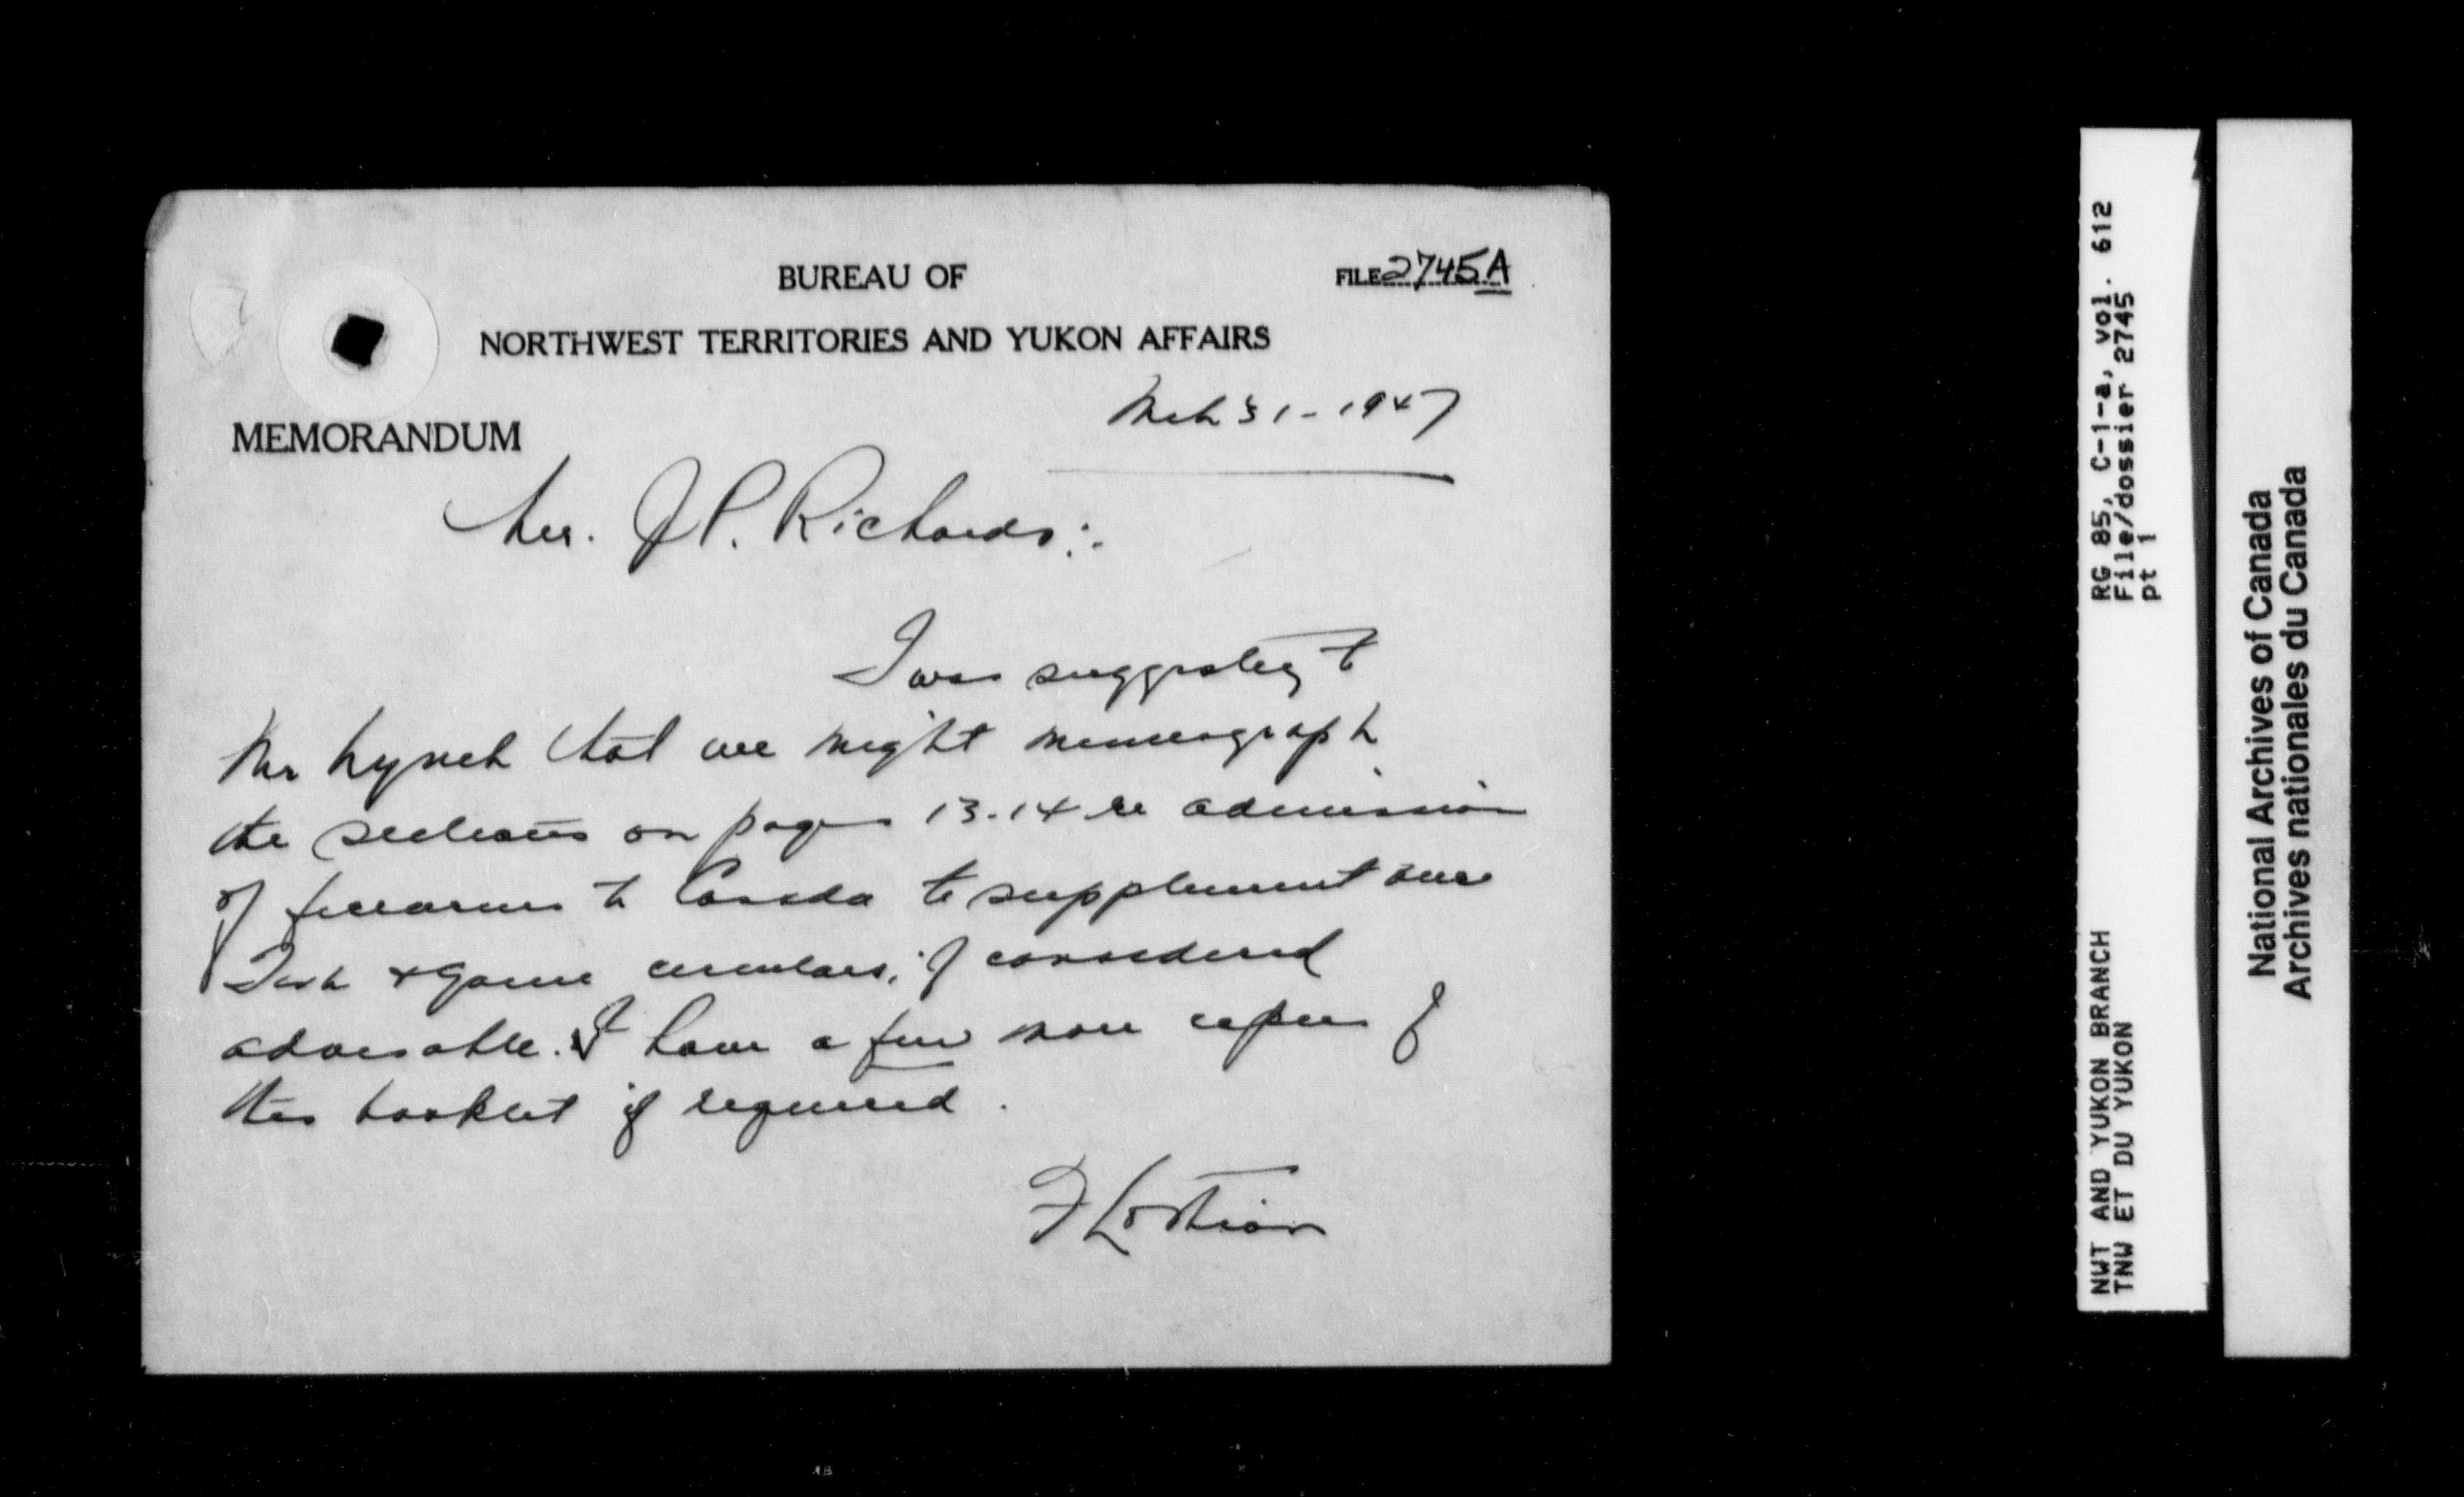 BUREAU OF
FILE 2745A
NORTHWEST TERRITORIES AND YUKON AFFAIRS
Mch 31-1947
MEMORANDUM
Mr. J P. Richards:
I was suggesting to
Mr Lynch that we might mimeograph
the sections on pages 13-14 re admission
of firearms to Canada to supplement our
Fish & Game circulars, if considered
advisable. I have a few more copies of
this booklet if required.
RG 85, C-1-a, vol. 612
File/dossier 2745
pt 1
NWT AND YUKON BRANCH
TNW ET DU YUKON
National Archives of Canada
Archives nationales du Canada